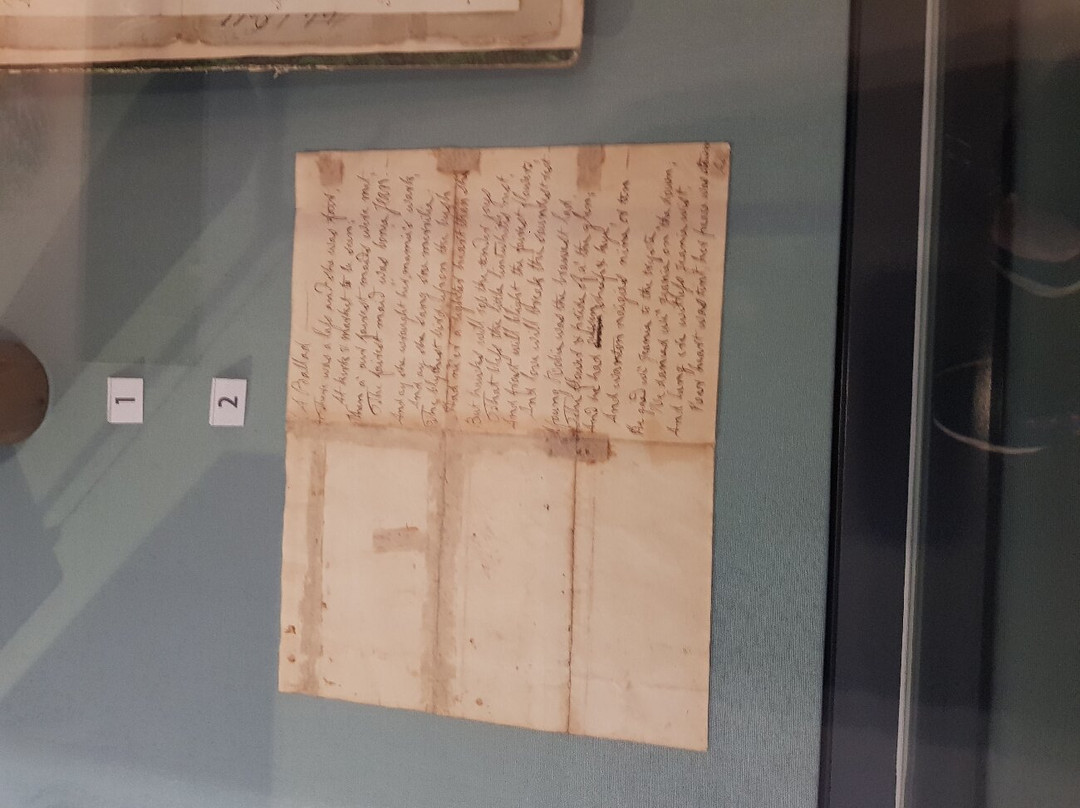 A Ballad
There was a lass and she was fair,
At kirk & market to be seen;
When a' our fairest maids were met,
The fairest maid was bonie Jean.
And ay she wrought her mamie's wark,
And ay she sang sae merrilie;
The blythest bird upon the bush
Had ne'er a lighter heart than she
But hawks will rob the tender joys
That bless the little lintwhite's nest,
And frost will blight the fairest flowers,
And love will break the soundest rest
Young Robie was the brawest lad
The flower & pride of a' the glen,
And he had sheep & kye,
And wanton naigies nine or ten
He gaed wi' Jeanie to the tryste,
He danced wi' Jeanie on the down,
And lang ere witless Jeanie wist
Her heart was tint her peace was stown
1
2